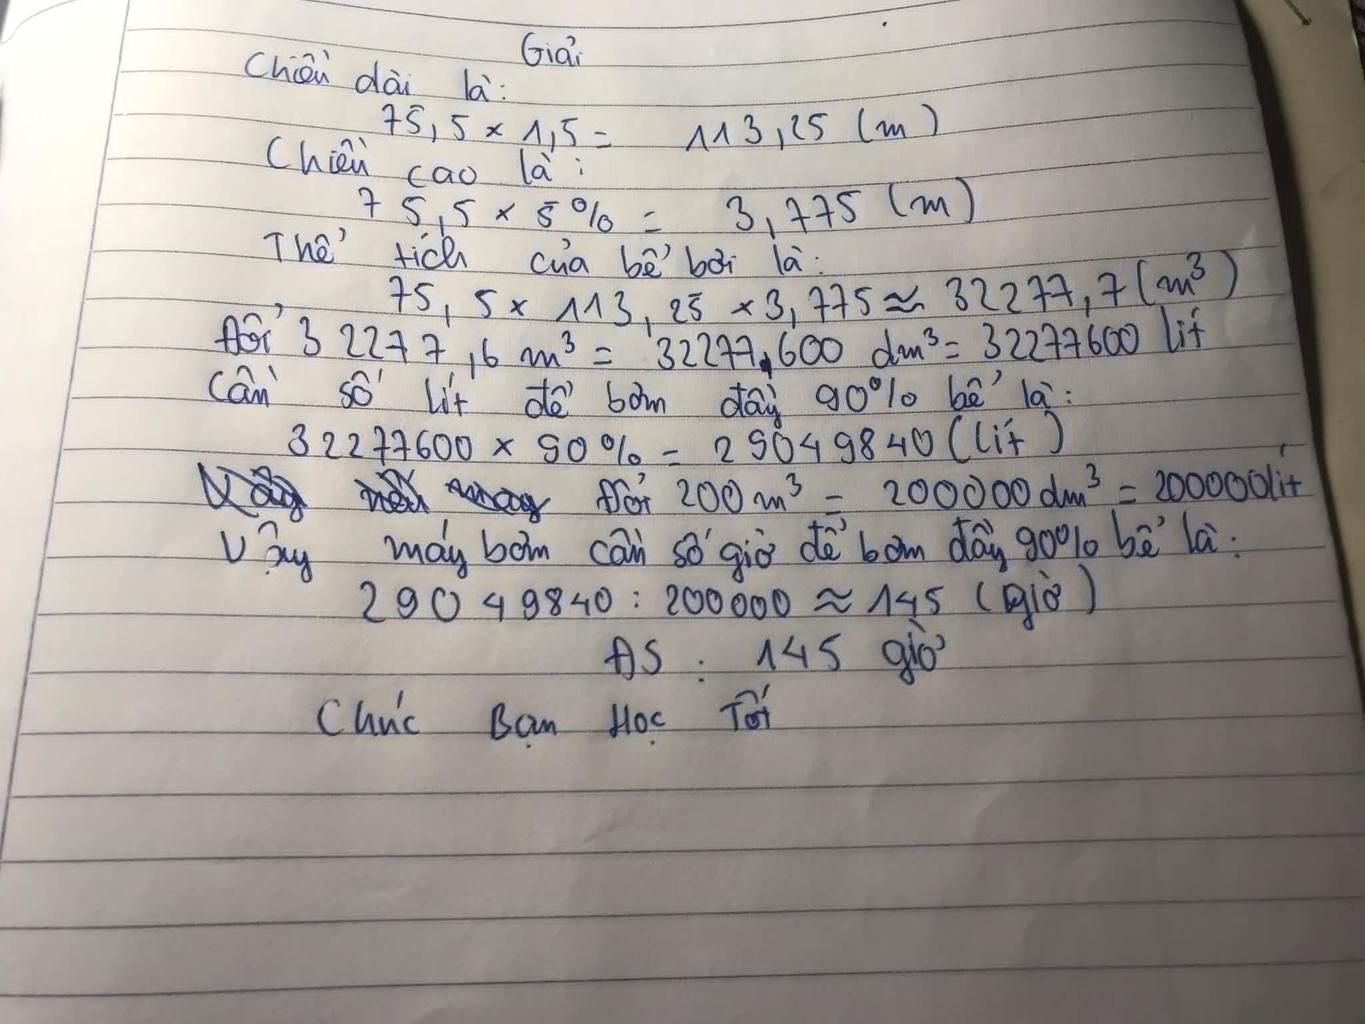 Giải
Chiều dài là:
75,5 × 1,5 = 113,25 (m)
Chiều cao là:
75,5 × 5% = 3,775 (m)
Thể tích của bể bơi là:
75,5 × 113,25 × 3,775 ≈ 32277,7 (m³)
Đổi 32277,6 m³ = 32277,600 dm³ = 32277600 lít
Cần số lít để bơm đầy 90% bể là:
32277600 × 90% = 29049840 (lít)
Đổi 200 m³ = 200000 dm³ = 200000 lít
Vậy máy bơm cần số giờ để bơm đầy 90% bể là:
29049840 : 200000 ≈ 145 (giờ)
ĐS : 145 giờ
Chúc Bạn Học Tốt